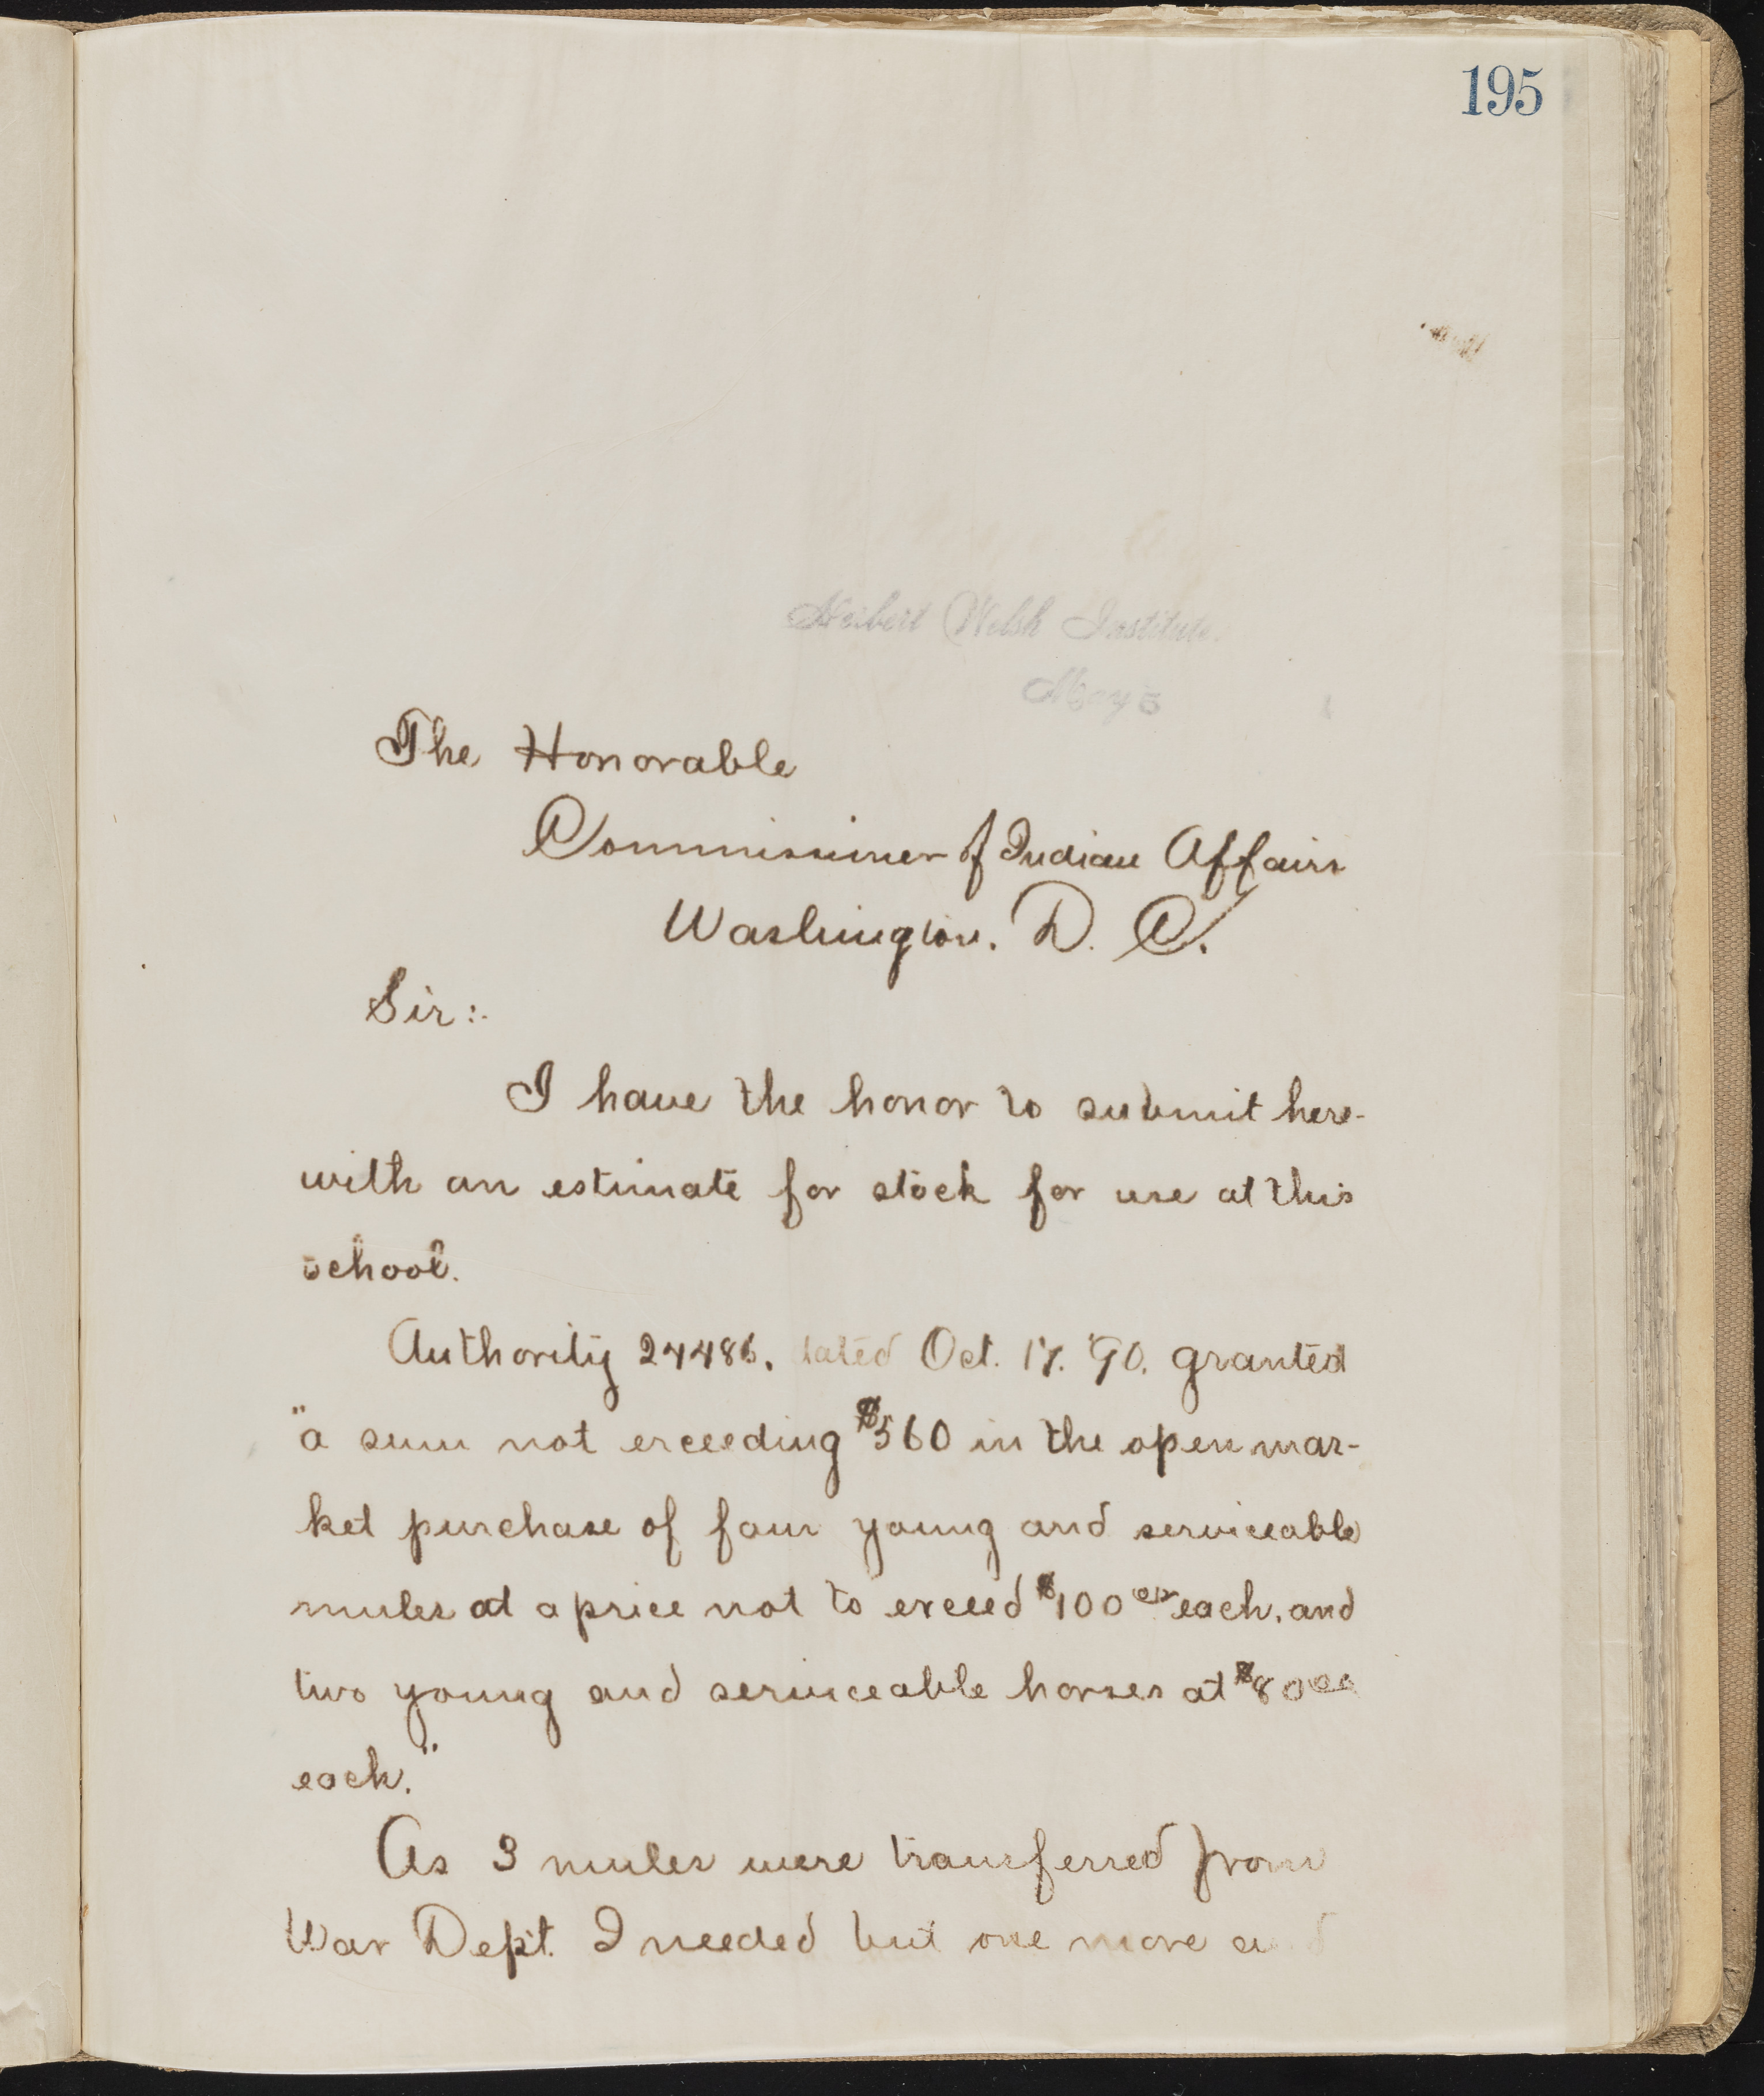 195
Herbert Welsh Institute.
May 5
The Honorable
Commissioner of Indian Affairs
Washington. D. C.
Sir:-
I have the honor to submit here-
with an estimate for stock for use at this
school.
Authority 24486. dated Oct. 17. '90. granted
"a sum not exceeding $560 in the open mar-
ket purchase of four young and serviceable
mules at a price not to exceed $100 00 each, and
two young and serviceable horses at $80 00
each."
As 3 mules were transferred from
War Dept. I needed but one more and